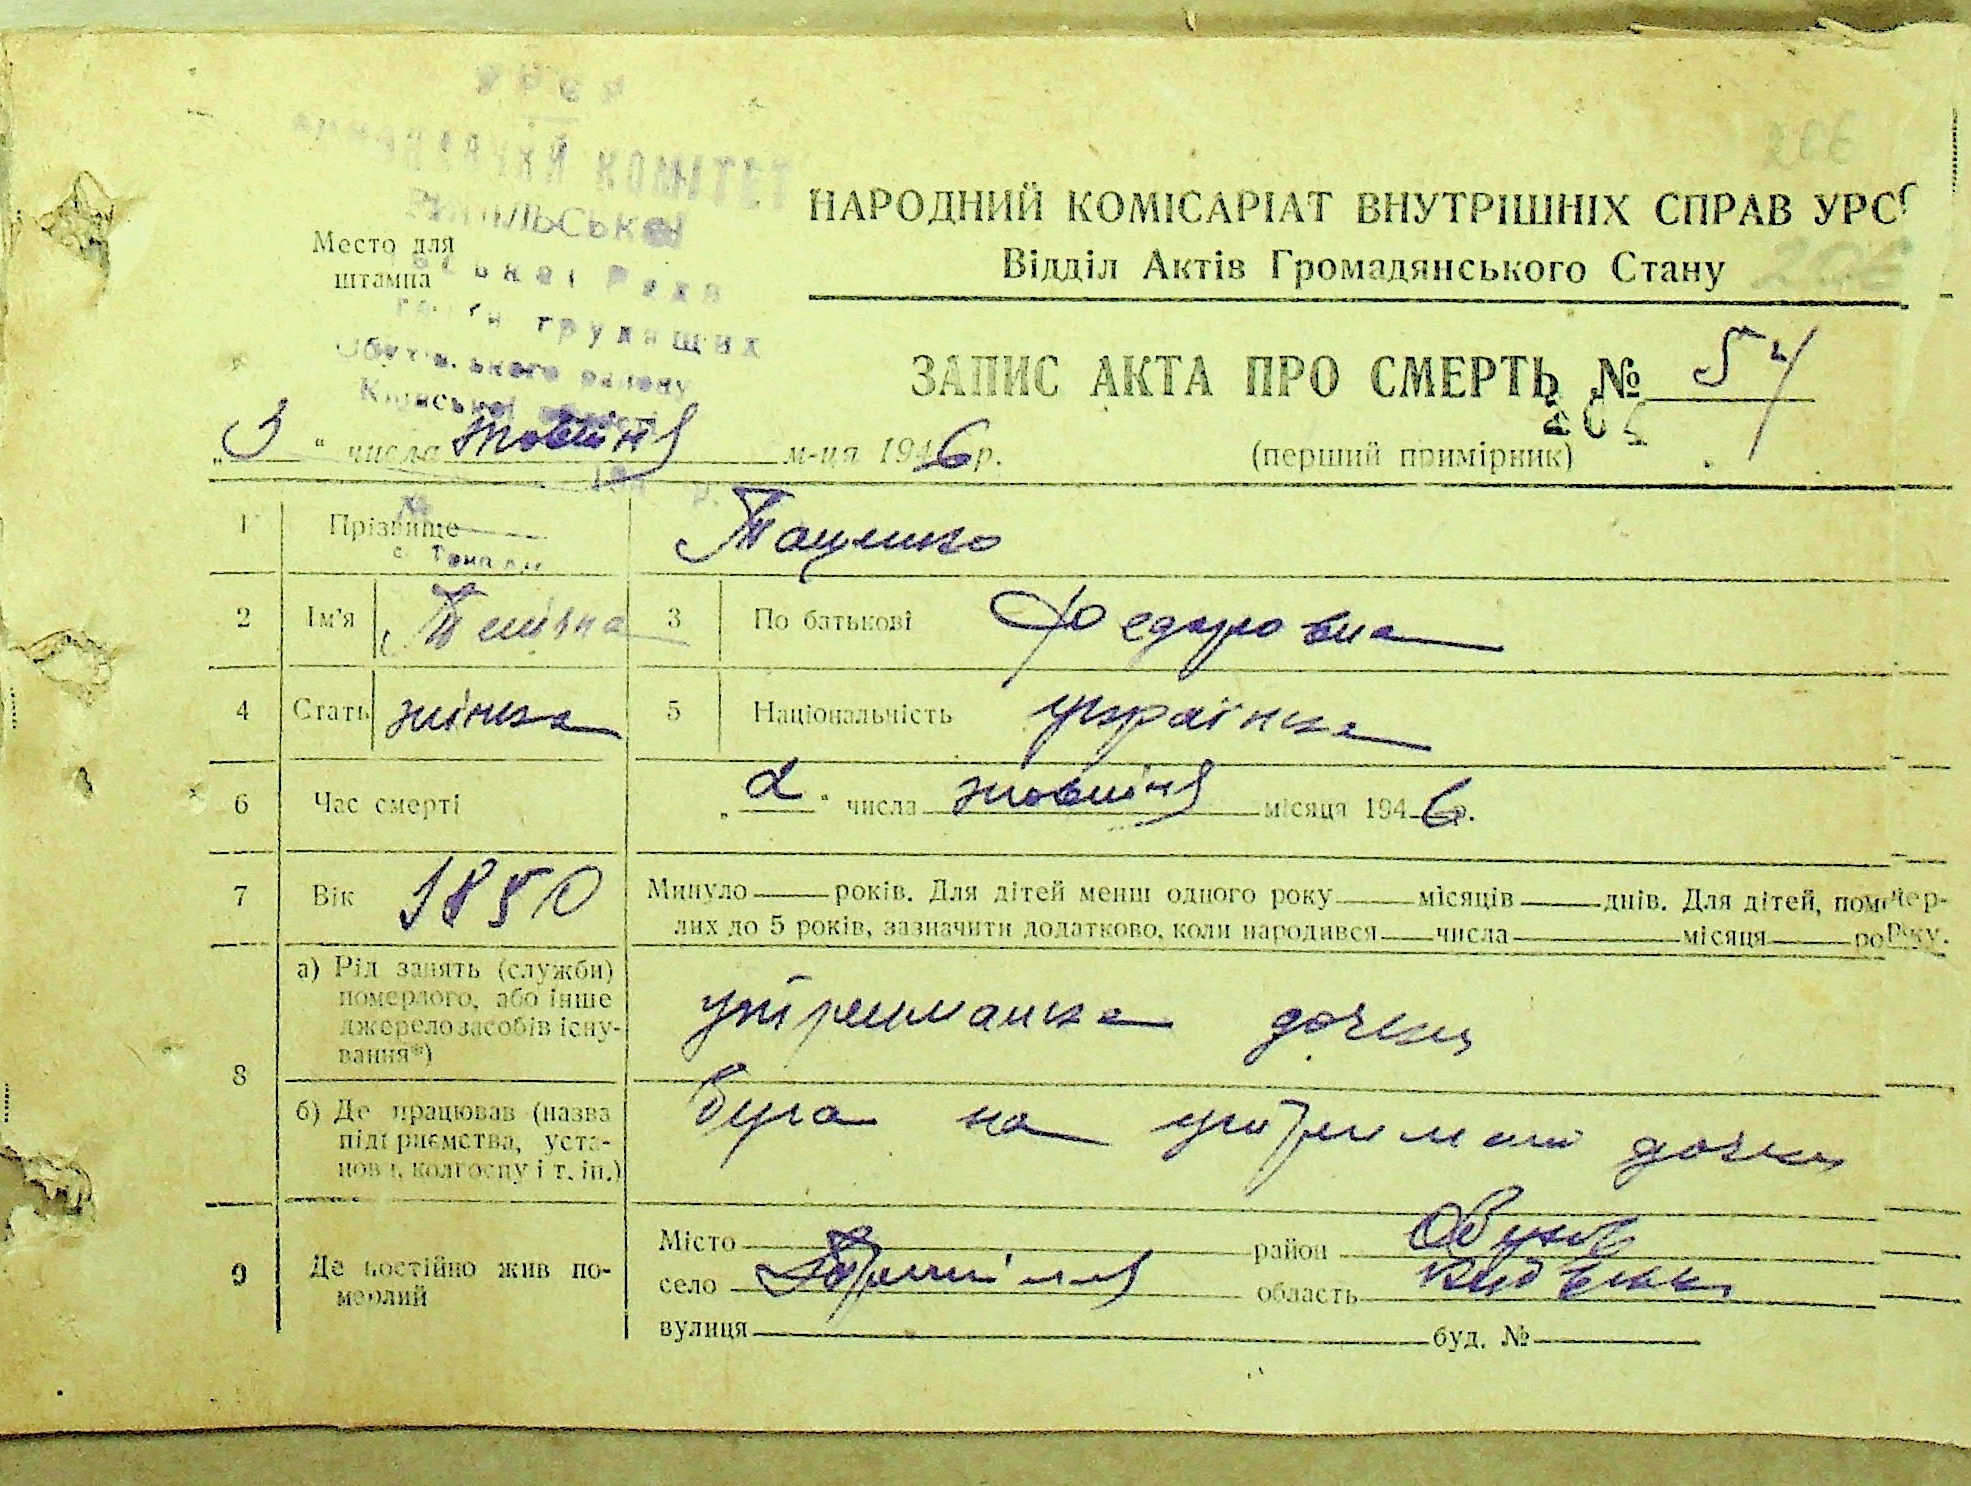 УРСР
КОМІТЕТ
НАРОДНИЙ КОМІСАРІАТ ВНУТРІШНІХ СПРАВ УРСР
Место для штампа
Відділ Актів Громадянського Стану
трудящих
ЗАПИС АКТА ПРО СМЕРТЬ № 54
„3“ числа жовтня м-ця 1946 р.
(перший примірник)
1 Прізвище Таценко
2 Ім'я 3 По батькові Федоровна
4 Стать жінка 5 Національність українка
6 Час смерті „2“ числа жовтня місяця 1946 р.
7 Вік 1850 Минуло ___ років. Для дітей менш одного року ___ місяців ___ днів. Для дітей, помер-
лих до 5 років, зазначити додатково, коли народився ___ числа ___ місяця ___ року.
8 а) Рід занять (служби)
померлого, або інше
джерело засобів існу-
вання*)
утриманка дочки
б) Де працював (назва
підприємства, уста-
нови, колгоспу і т. ін.)
була на утриманні дочки
9 Де постійно жив по-
мерлий
Місто ___ район Обухов
село Трипілля область Київська
вулиця ___ буд. № ___